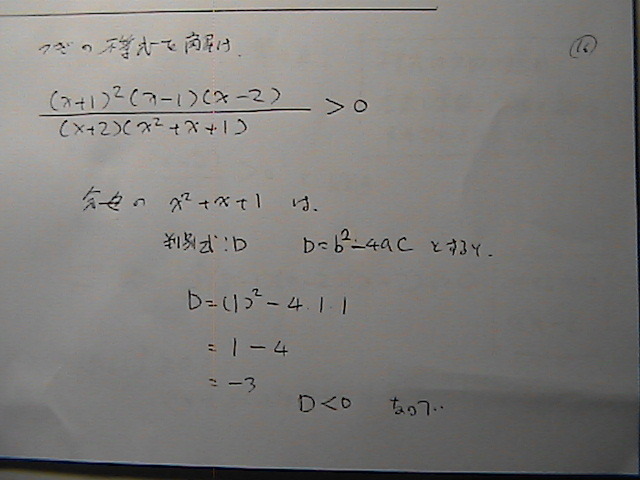 つぎの不等式を解け. ⑯
(x+1)²(x-1)(x-2) / (x+2)(x²+x+1) > 0
分母の x²+x+1 は.
判別式:D D=b²-4ac とすると.
D=(1)²-4.1.1
=1-4
=-3
D<0 なので..